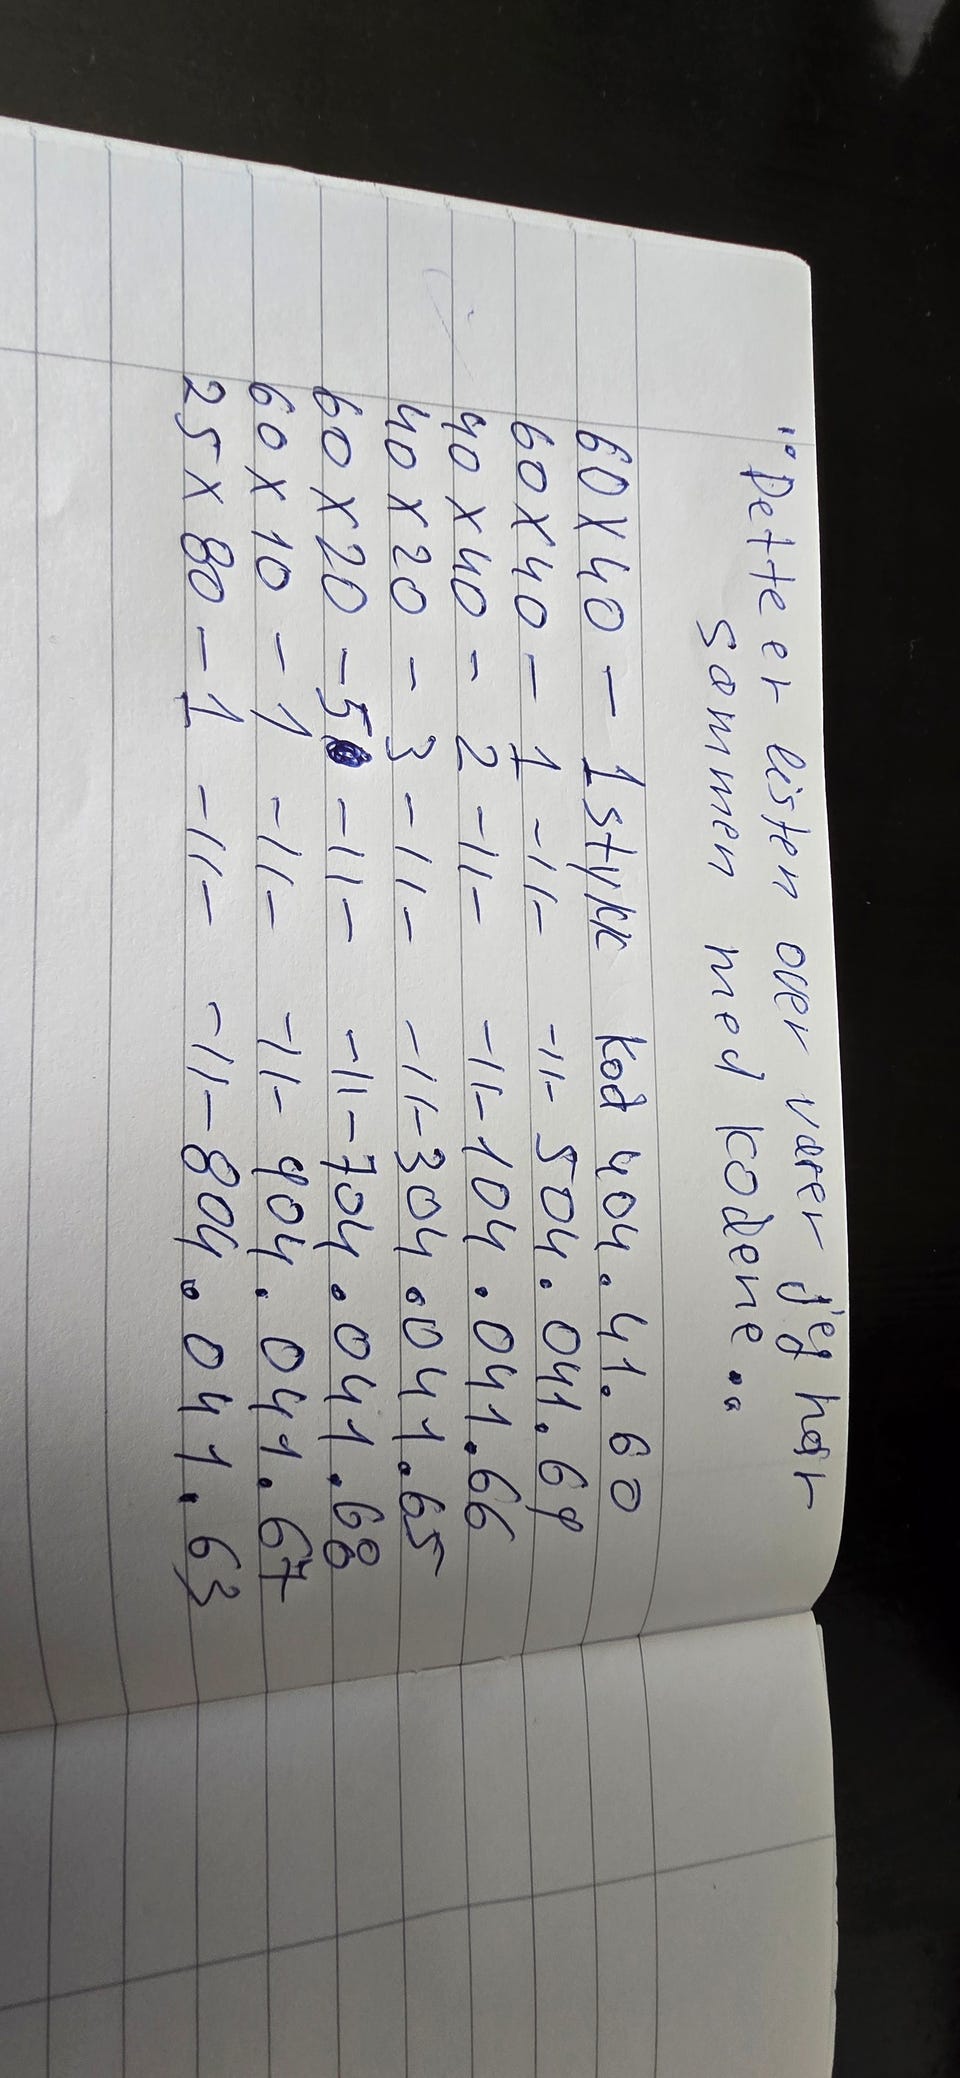 "Dette er listen over varer jeg har
sammen med kodene."
60x40 - 1 stykk kod 404.41.60
60x40 - 1 -11- -11- 504.041.69
40x40 - 2 -11- -11- 104.041.66
40x20 - 3 -11- -11- 304.041.65
60x20 - 5 -11- -11- 704.041.68
60x10 - 1 -11- -11- 904.041.67
25x80 - 1 -11- -11- 804.041.63